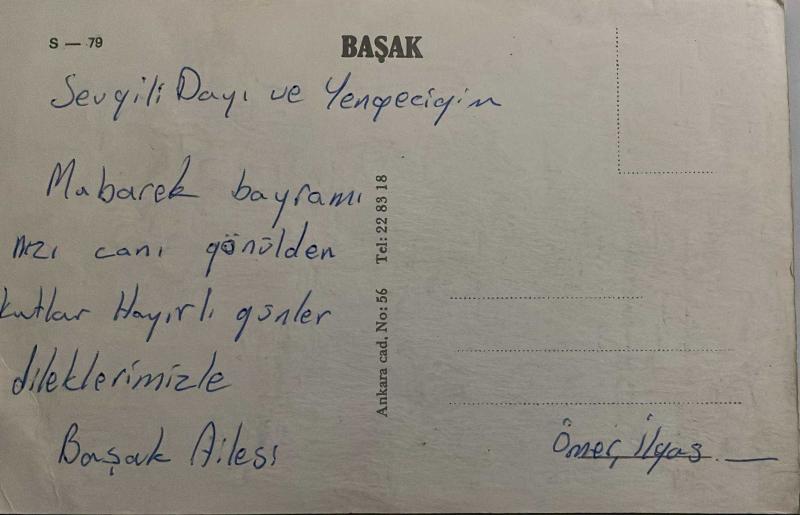 S — 79
BAŞAK
Sevgili Dayı ve Yengeciğim
Mubarek bayramı
nızı canı gönülden
kutlar Hayırlı günler
dileklerimizle
Başak Ailesi
Ankara cad, No: 56 Tel: 22 83 18
Ömer, İlyas